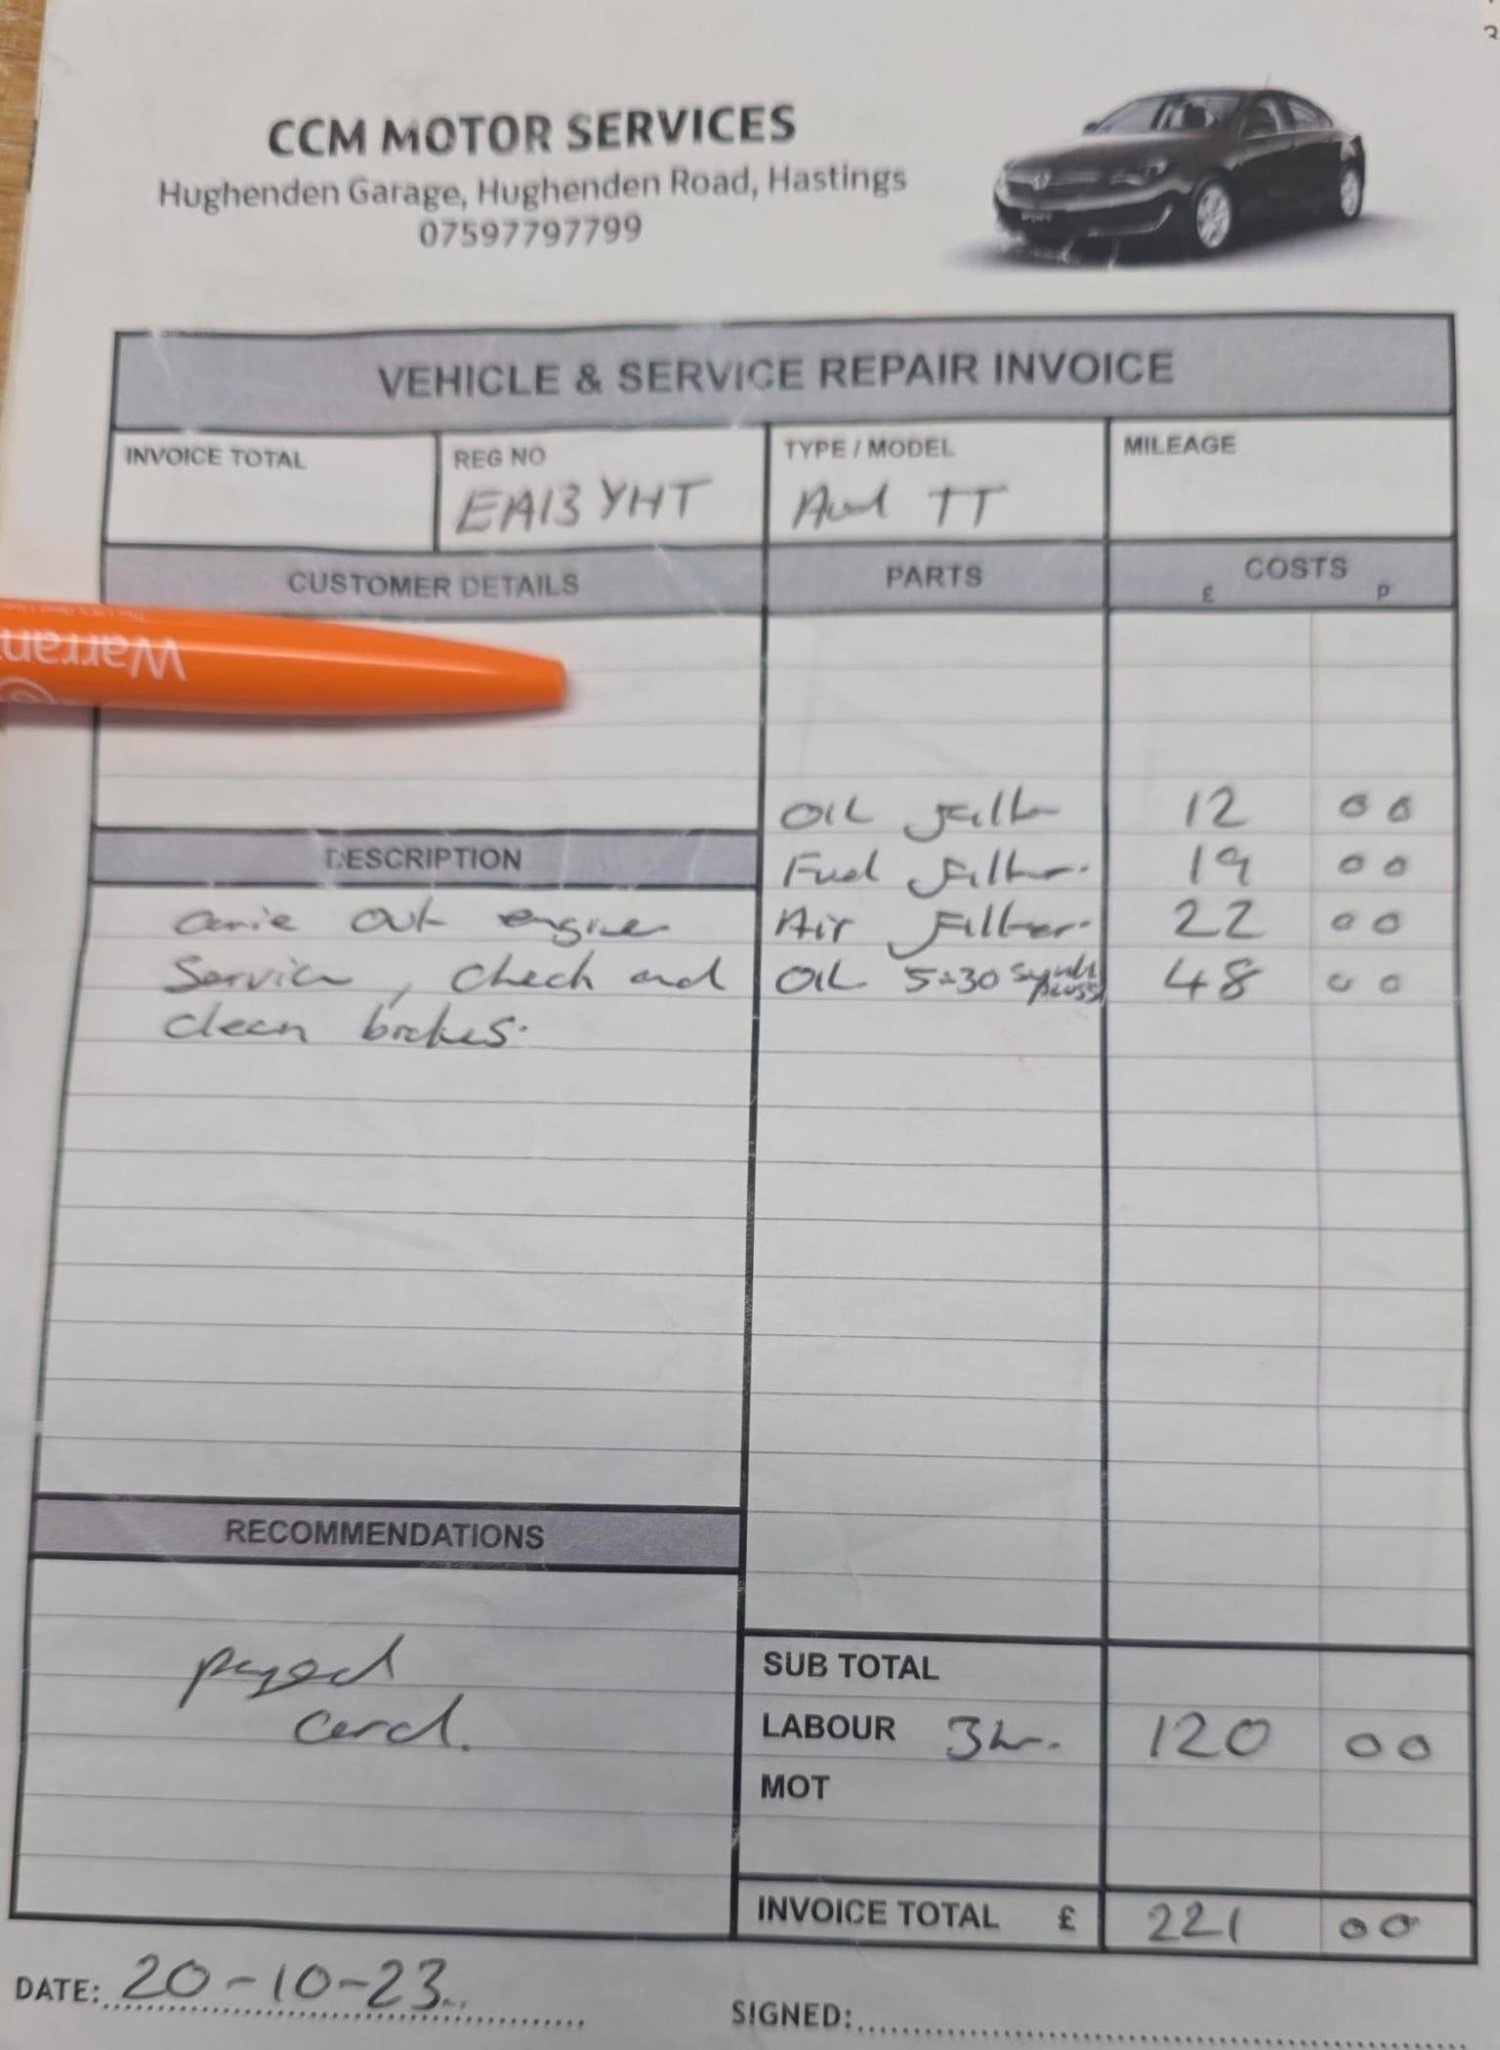 CCM MOTOR SERVICES
Hughenden Garage, Hughenden Road, Hastings
07597797799
VEHICLE & SERVICE REPAIR INVOICE
INVOICE TOTAL
REG NO
EA13 YHT
TYPE / MODEL
Audi TT
MILEAGE
CUSTOMER DETAILS
PARTS
COSTS
£ p
Warran
OIL Filter 12 00
DESCRIPTION
Fuel Filter. 19 00
Air Filter. 22 00
OIL 5-30 48 00
out engine
Service, check and
clean brakes.
RECOMMENDATIONS
payed
card.
SUB TOTAL
LABOUR 3hr. 120 00
MOT
INVOICE TOTAL £ 221 00
DATE: 20-10-23
SIGNED: